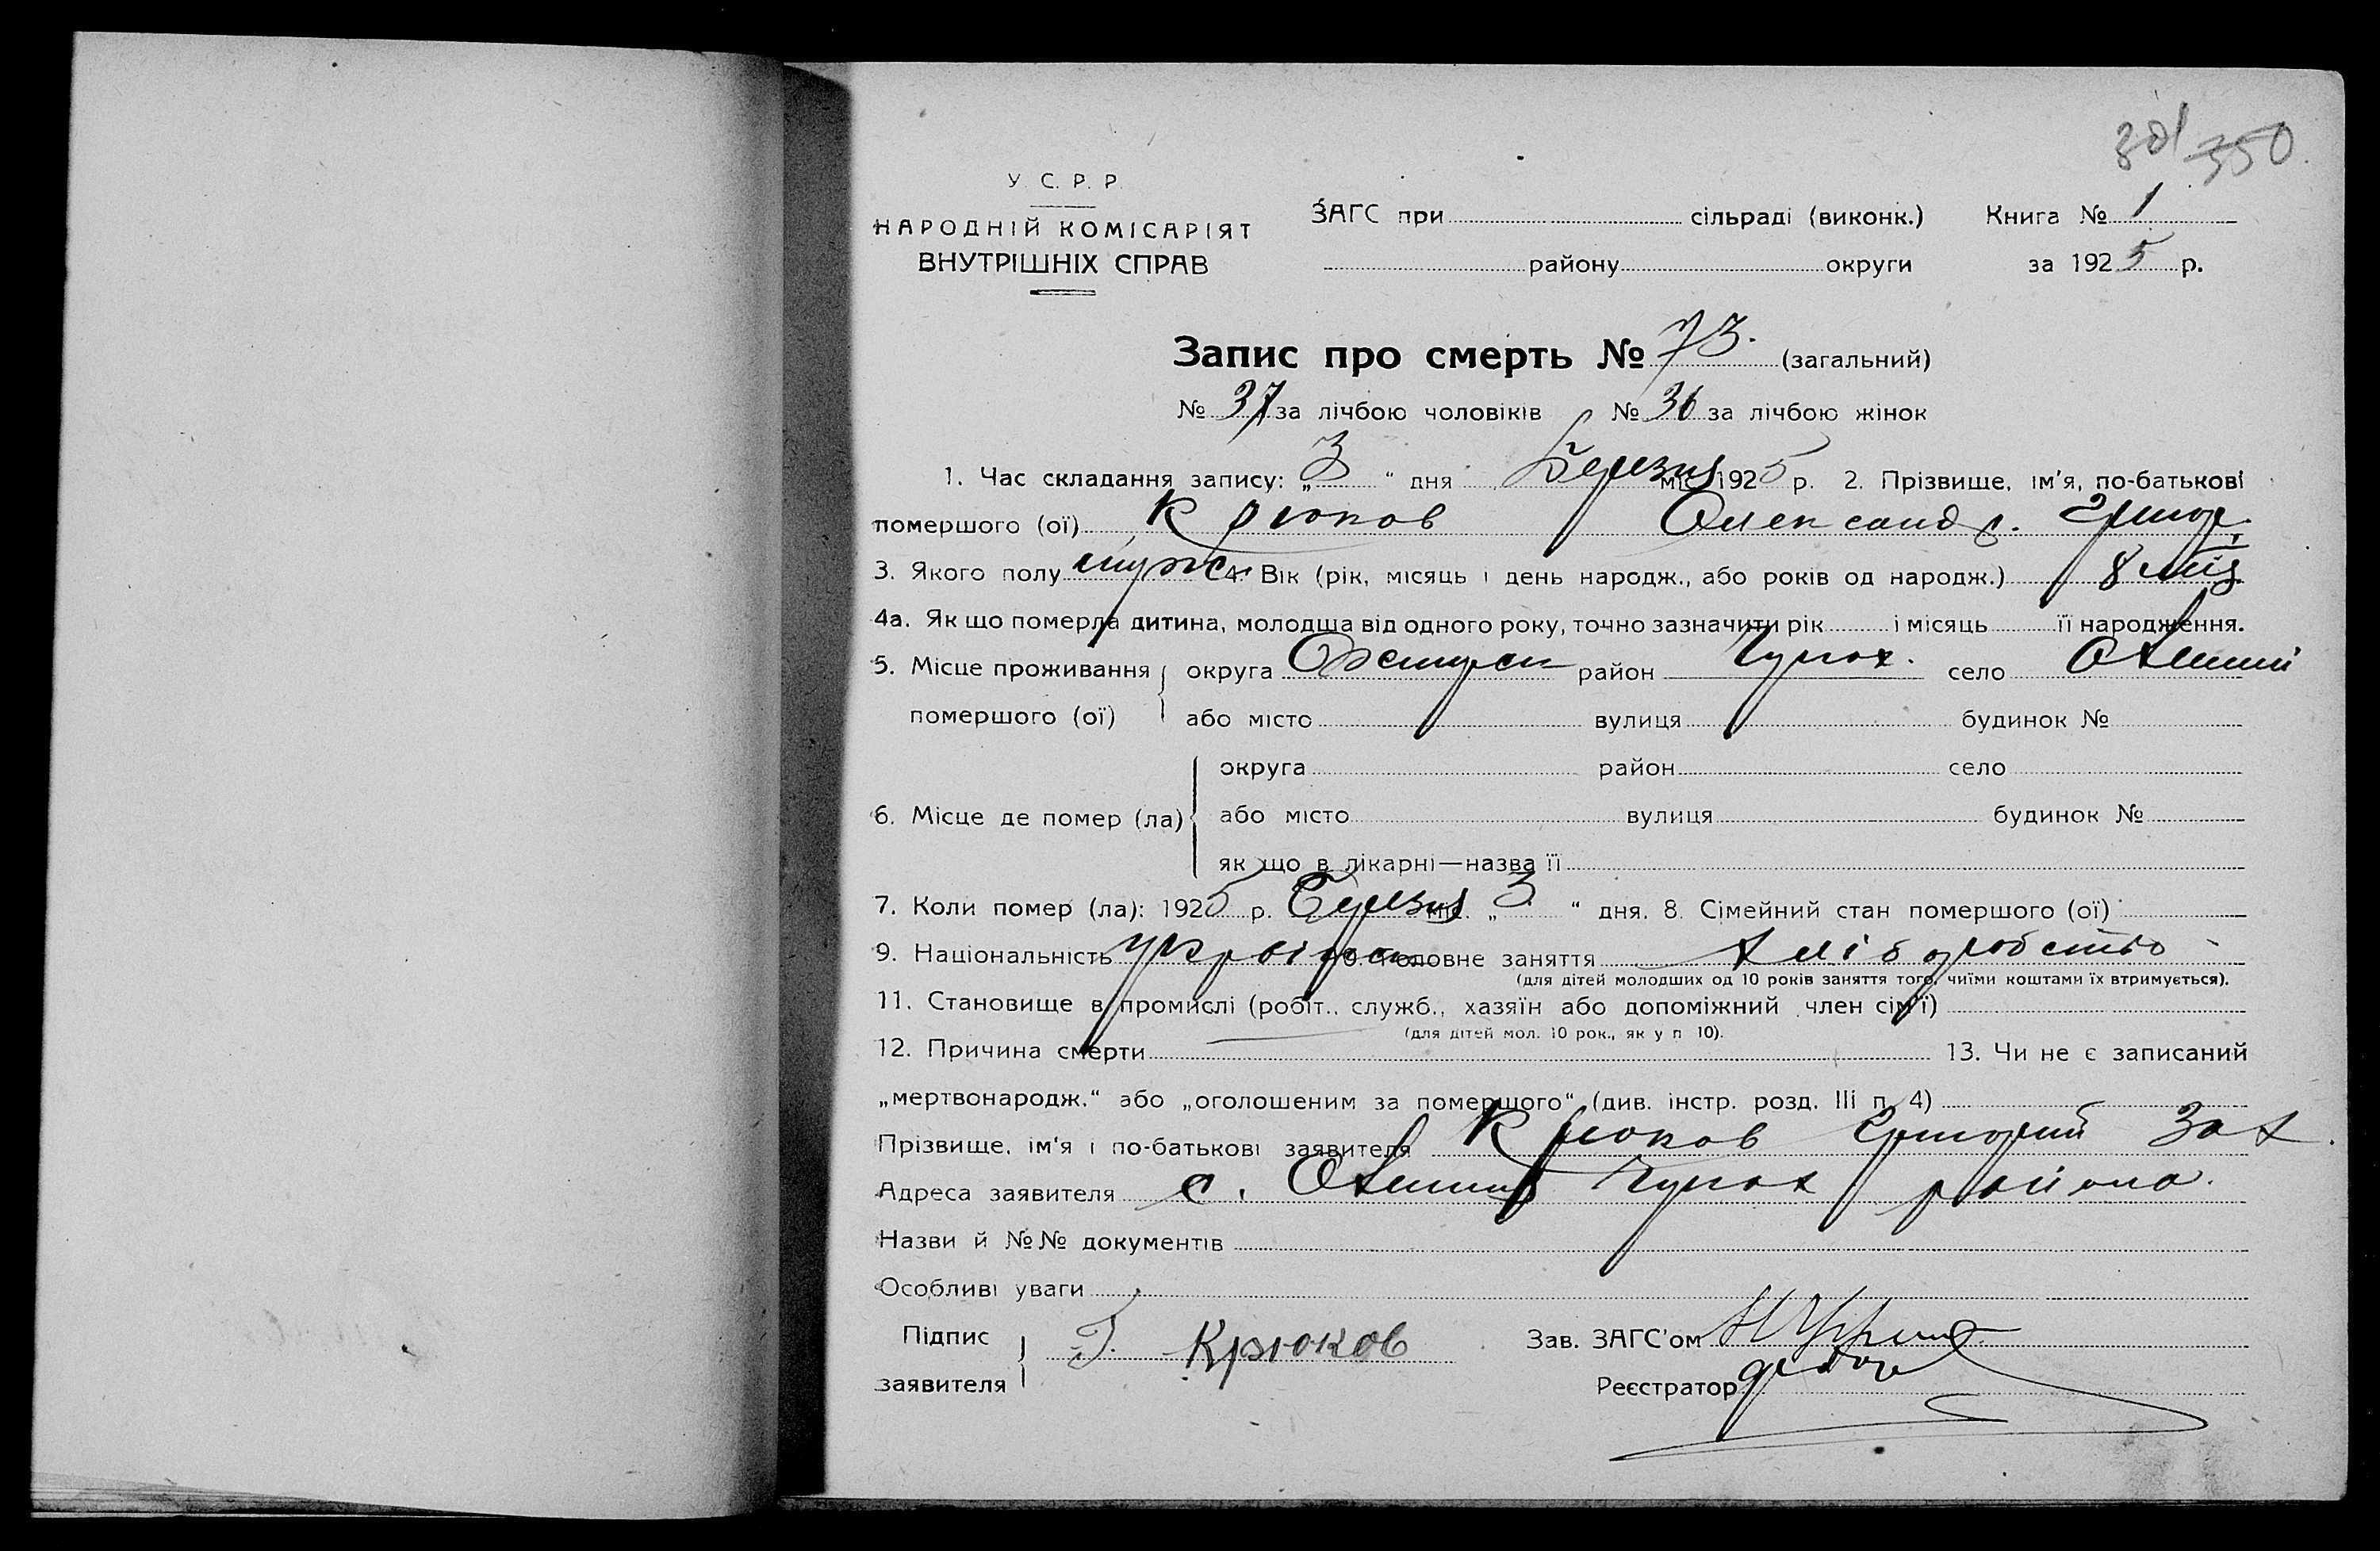 301 350
У. С. Р. Р.
НАРОДНІЙ КОМІСАРІЯТ
ВНУТРІШНІХ СПРАВ
ЗАГС при сільраді (виконк.) Книга № 1
району округи за 1925 р.
Запис про смерть № 73. (загальний)
№ 37 за лічбою чоловіків № 36 за лічбою жінок
1. Час складання запису: „3“ дня Березня міс. 1925 р. 2. Прізвище, ім'я, по-батькові
помершого (ої) Крюков Олександ. Григор.
3. Якого полу муже 4. Вік (рік, місяць і день народж., або років од народж.) 8 міц
4а. Як що померла дитина, молодша від одного року, точно зазначити рік і місяць її народження.
5. Місце проживання округа район село
помершого (ої) або місто вулиця будинок №
6. Місце де помер (ла) округа район село
або місто вулиця будинок №
як що в лікарні—назва її
7. Коли помер (ла): 1925 р. Березня міс. „3“ дня. 8. Сімейний стан помершого (ої)
9. Національність україн Головне заняття хліборобство
(для дітей молодших од 10 років заняття того, чиїми коштами їх втримується).
11. Становище в промислі (робіт., служб., хазяїн або допоміжний член сім'ї)
(для дітей мол. 10 рок., як у п 10).
12. Причина смерти 13. Чи не є записаний
„мертвонародж.“ або „оголошеним за померщого“ (див. інстр. розд. III п. 4)
Прізвище, ім'я і по-батькові заявителя Крюков Григорий Зах.
Адреса заявителя с. района.
Назви й №№ документів
Особливі уваги
Підпис
заявителя Г. Крюков
Зав. ЗАГС'ом
Реєстратор